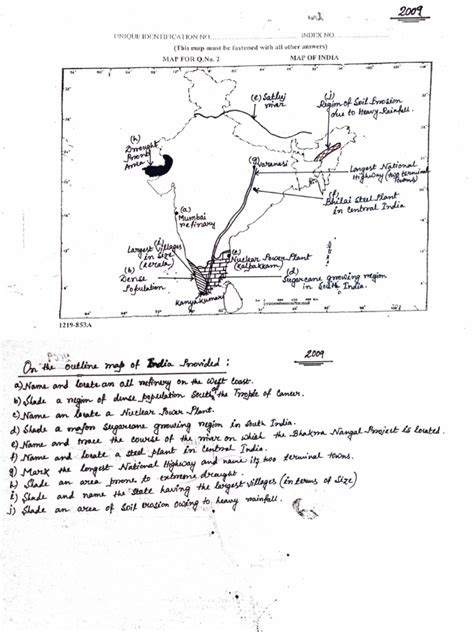 2009
UNIQUE IDENTIFICATION NO.
INDEX NO.
(This map must be fastened with all other answers)
MAP FOR Q.No. 2
MAP OF INDIA
(e) Satluj
river
(j)
Region of Soil Erosion
due to Heavy Rainfall.
(h)
Drought
Prone
Area
(g) Varanasi
Largest National
Highway (two terminal
towns)
(f)
Bhilai Steel Plant
in Central India
(a)
Mumbai
refinary
Largest Villages
in Size
(Kerala)
(c)
Nuclear Power Plant
(Kalpakkam)
(b)
Dense
Population
(d)
Sugarcane growing region
in South India.
Kanyakumari
1219-853A
2009
On the outline map of India Provided :
a) Name and locate an oil refinery on the West coast.
b) Shade a region of dense population South of the Tropic of Cancer.
c) Name an locate a Nuclear Power Plant.
d) Shade a major Sugarcane growing region in South India.
e) Name and trace the course of the river on which the Bhakra Nangal Project is located.
f) Name and locate a steel plant in Central India.
g) Mark the longest National Highway and name its two terminal towns.
h) Shade an area prone to extreme drought.
i) Shade and name the State having the largest villages (in terms of Size)
j) Shade an area of Soil erosion owing to heavy rainfall.